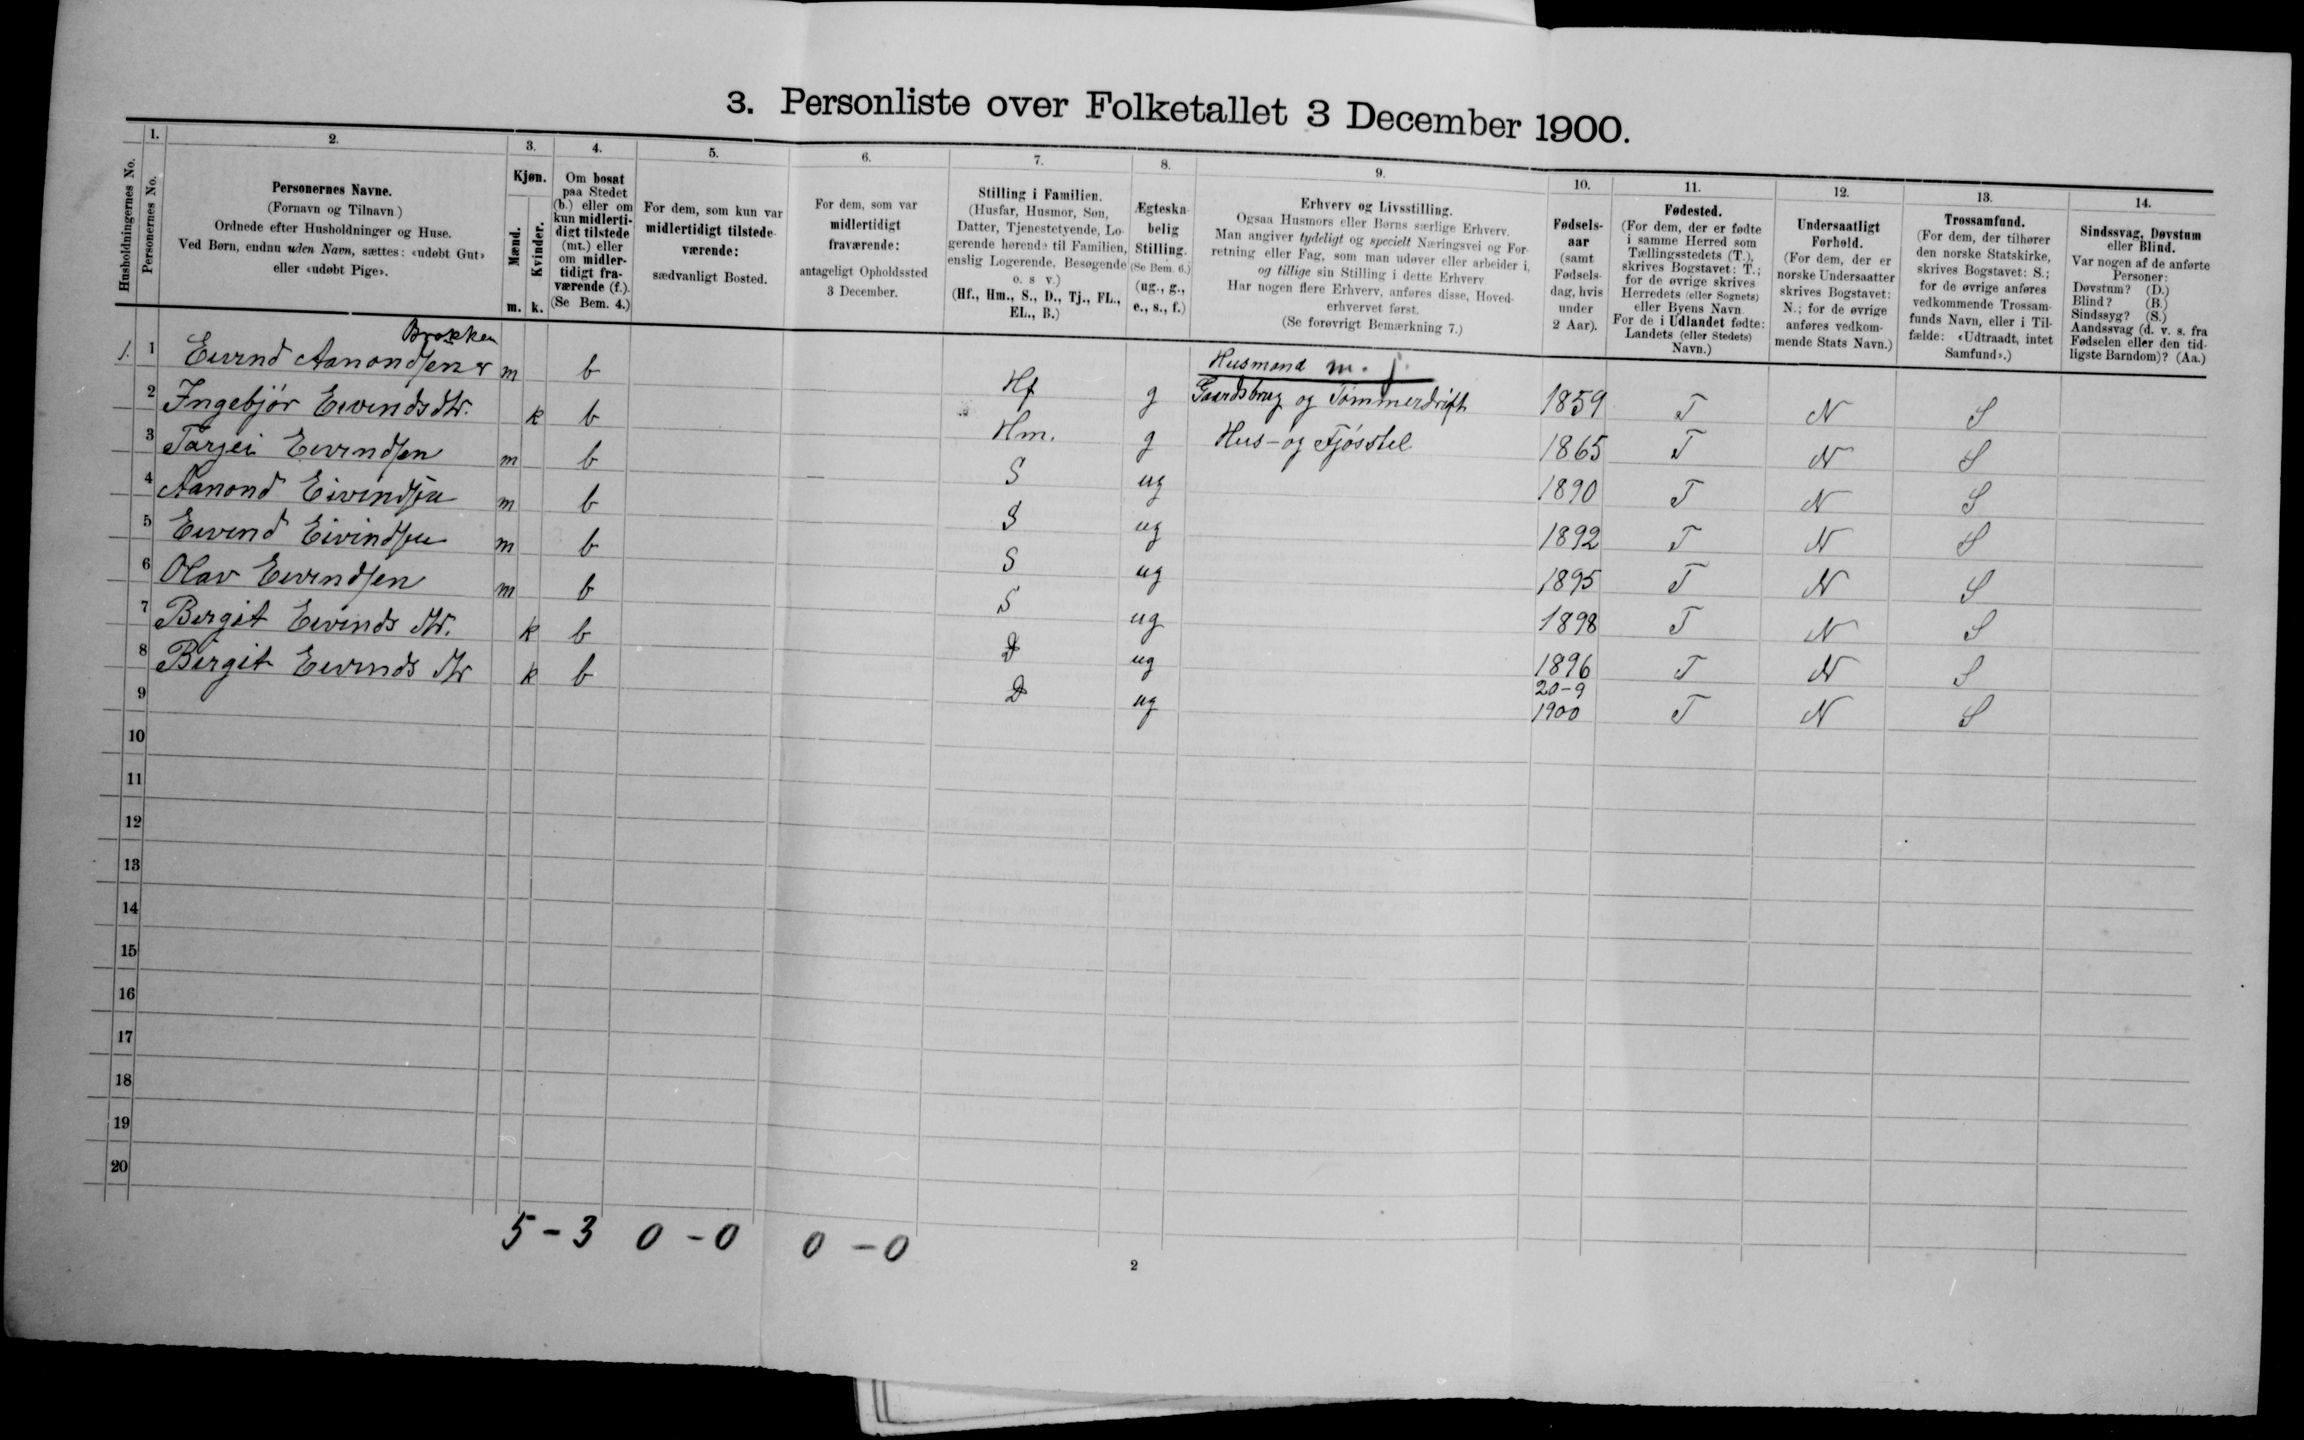 3. Personliste over Folketallet 3 December 1900.
1. 2. 3. 4. 5. 6. 7. 8. 9. 10. 11. 12. 13. 14.
Husholdningernes No.
Personernes No.
Personernes Navne.
(Fornavn og Tilnavn.)
Ordnede efter Husholdninger og Huse.
Ved Børn, endnu uden Navn, sættes: «udøbt Gut»
eller «udøbt Pige».
Kjøn.
Mænd.
Kvinder.
m. k.
Om bosat
paa Stedet
(b.) eller om
kun midlerti-
digt tilstede
(mt.) eller
om midler-
tidigt fra-
værende (f.).
(Se Bem. 4.)
For dem, som kun var
midlertidigt tilstede-
værende:
sædvanligt Bosted.
For dem, som var
midlertidigt
fraværende:
antageligt Opholdssted
3 December.
Stilling i Familien.
(Husfar, Husmor, Søn,
Datter, Tjenestetyende, Lo-
gerende hørende til Familien,
enslig Logerende, Besøgende
o. s v.)
(Hf., Hm., S., D., Tj., FL.,
EL., B.)
Ægteska-
belig
Stilling.
(Se Bem. 6.)
(ug., g.,
e., s., f.)
Erhverv og Livsstilling.
Ogsaa Husmors eller Børns særlige Erhverv.
Man angiver tydeligt og specielt Næringsvei og For-
retning eller Fag, som man udøver eller arbeider i,
og tillige sin Stilling i dette Erhverv
Har nogen flere Erhverv, anføres disse, Hoved-
erhvervet først.
(Se forøvrigt Bemærkning 7.)
Fødsels-
aar
(samt
Fødsels-
dag, hvis
under
2 Aar).
Fødested.
(For dem, der er fødte
i samme Herred som
Tællingsstedets (T.),
skrives Bogstavet: T.;
for de øvrige skrives
Herredets (eller Sognets)
eller Byens Navn
For de i Udlandet fødte:
Landets (eller Stedets)
Navn.)
Undersaatligt
Forhold.
(For dem, der er
norske Undersaatter
skrives Bogstavet:
N.; for de øvrige
anføres vedkom-
mende Stats Navn.)
Trossamfund.
(For dem, der tilhører
den norske Statskirke,
skrives Bogstavet: S.;
for de øvrige anføres
vedkommende Trossam-
funds Navn, eller i Til-
fælde: «Udtraadt, intet
Samfund».)
Sindssvag, Døvstum
eller Blind.
Var nogen af de anførte
Personer:
Døvstum? (D.)
Blind? (B.)
Sindssyg? (S.)
Aandssvag (d. v. s. fra
Fødselen eller den tid-
ligste Barndom)? (Aa.)
Husmand m. j.
1. 1 Eivind Aanondsen m b Hf g Gaardsbrug og Tømmerdrift 1859 T N S
2 Ingebjør Eivindsdtr. k b Hm. g Hus- og Fjøsstel 1865 T N S
3 Tarjei Eivindsen m b S ug 1890 T N S
4 Aanond Eivindsen m b S ug 1892 T N S
5 Eivind Eivindsen m b S ug 1895 T N S
6 Olav Eivindsen m b S ug 1898 T N S
7 Bergit Eivinds dtr. k b D ug 1896 T N S
8 Birgit Eivinds dtr k b D ug 20-9 1900 T N S
9
10
11
12
13
14
15
16
17
18
19
20
5 - 3 0 - 0 0 - 0
2